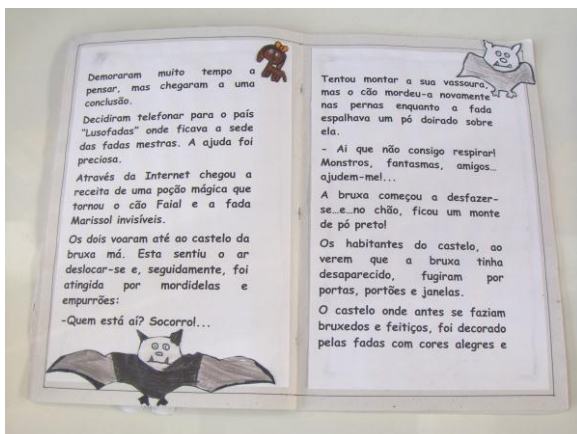 Demoraram muito tempo a
pensar, mas chegaram a uma
conclusão.
Decidiram telefonar para o país
"Lusofadas" onde ficava a sede
das fadas mestras. A ajuda foi
preciosa.
Através da Internet chegou a
receita de uma poção mágica que
tornou o cão Faial e a fada
Marissol invisíveis.
Os dois voaram até ao castelo da
bruxa má. Esta sentiu o ar
deslocar-se e, seguidamente, foi
atingida por mordidelas e
empurrões:
-Quem está aí? Socorro!...
Tentou montar a sua vassoura,
mas o cão mordeu-a novamente
nas pernas enquanto a fada
espalhava um pó doirado sobre
ela.
- Ai que não consigo respirar!
Monstros, fantasmas, amigos...
ajudem-me!...
A bruxa começou a desfazer-
se...e...no chão, ficou um monte
de pó preto!
Os habitantes do castelo, ao
verem que a bruxa tinha
desaparecido, fugiram por
portas, portões e janelas.
O castelo onde antes se faziam
bruxedos e feitiços, foi decorado
pelas fadas com cores alegres e